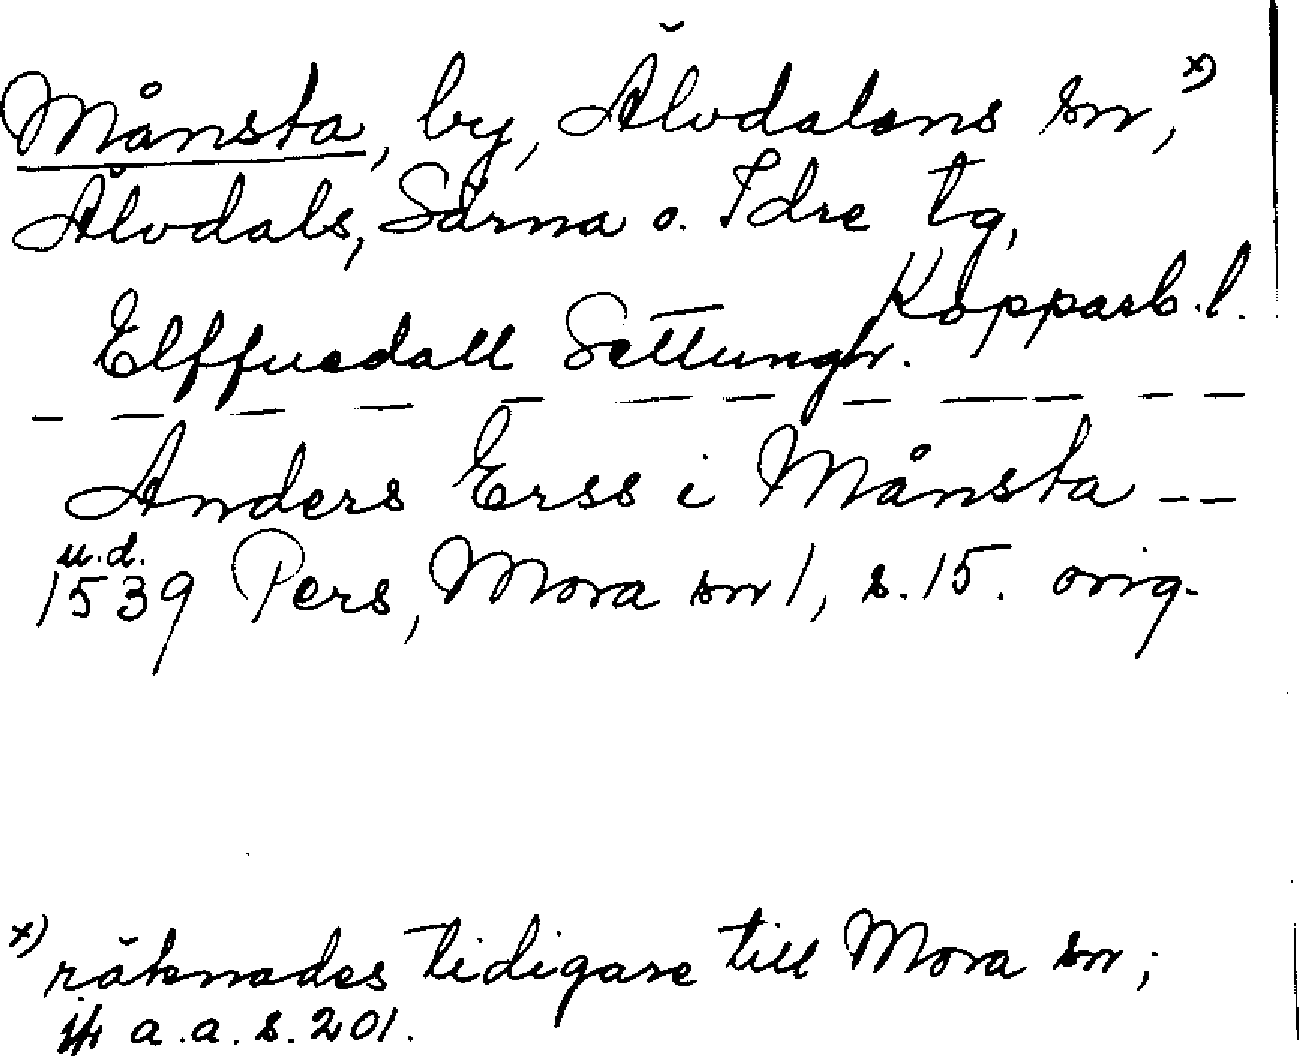 Månsta, by, Älvdalens sn, x)
Älvdals, Särna o. Idre tg,
Kopparb. l.
Elffuedall Settungh.
— — — — — — — — — — —
Anders Erss i Månsta --
u.d.
1539 Pers, Mora sn 1, s. 15. orig.
x) räknades tidigare till Mora sn;
jfr a.a. s. 201.